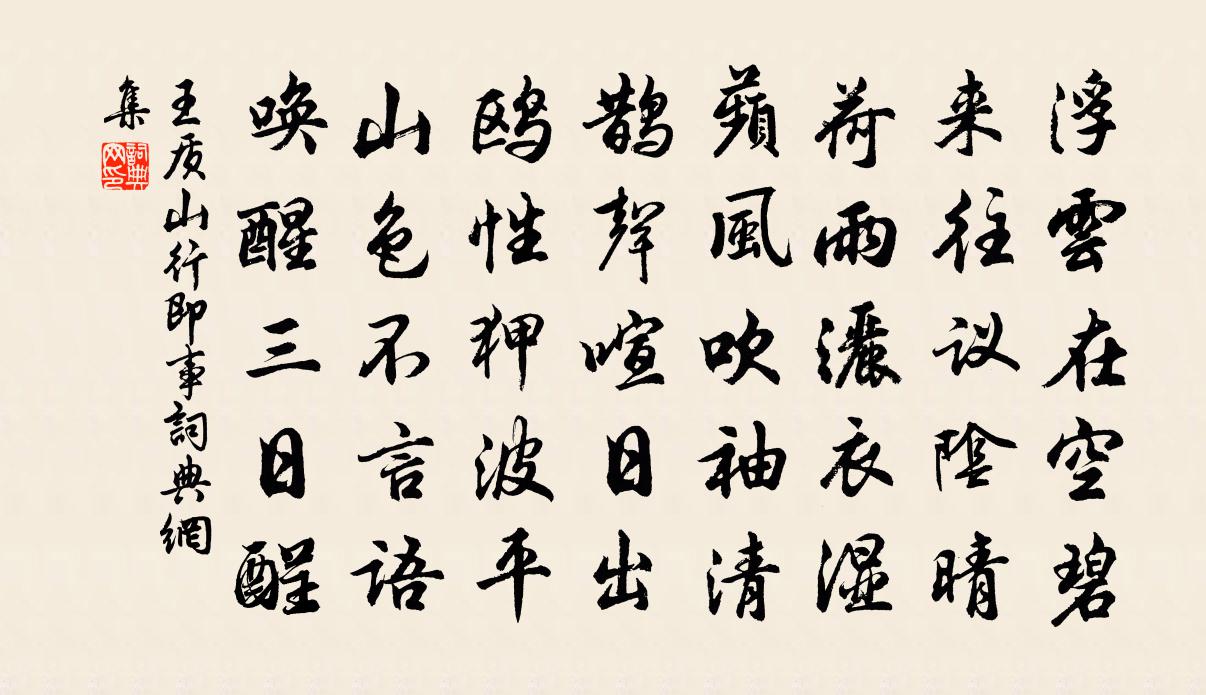 浮雲在空碧
来往议陰晴
荷雨灑衣湿
蘋風吹袖清
鵲聲喧日出
鸥性狎波平
山色不言语
唤醒三日酲
王质山行即事詞典網
集
詞典网印